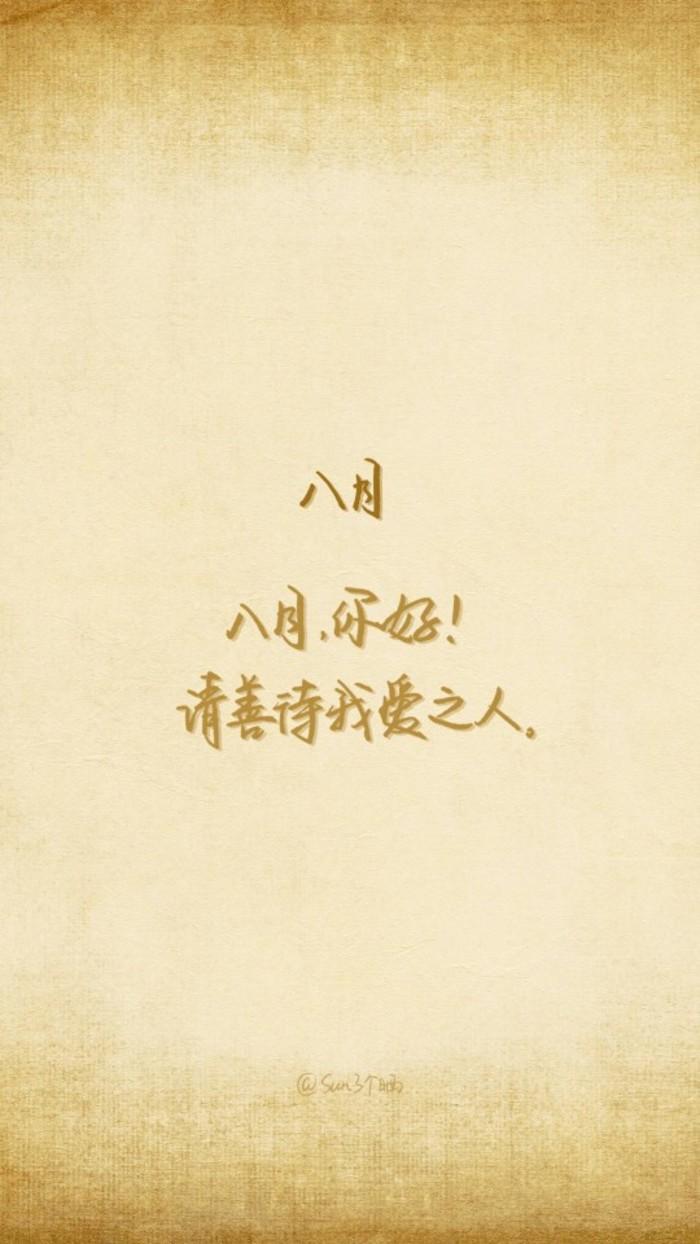 八月
八月,你好!
请善待我爱之人。
@Sun3个